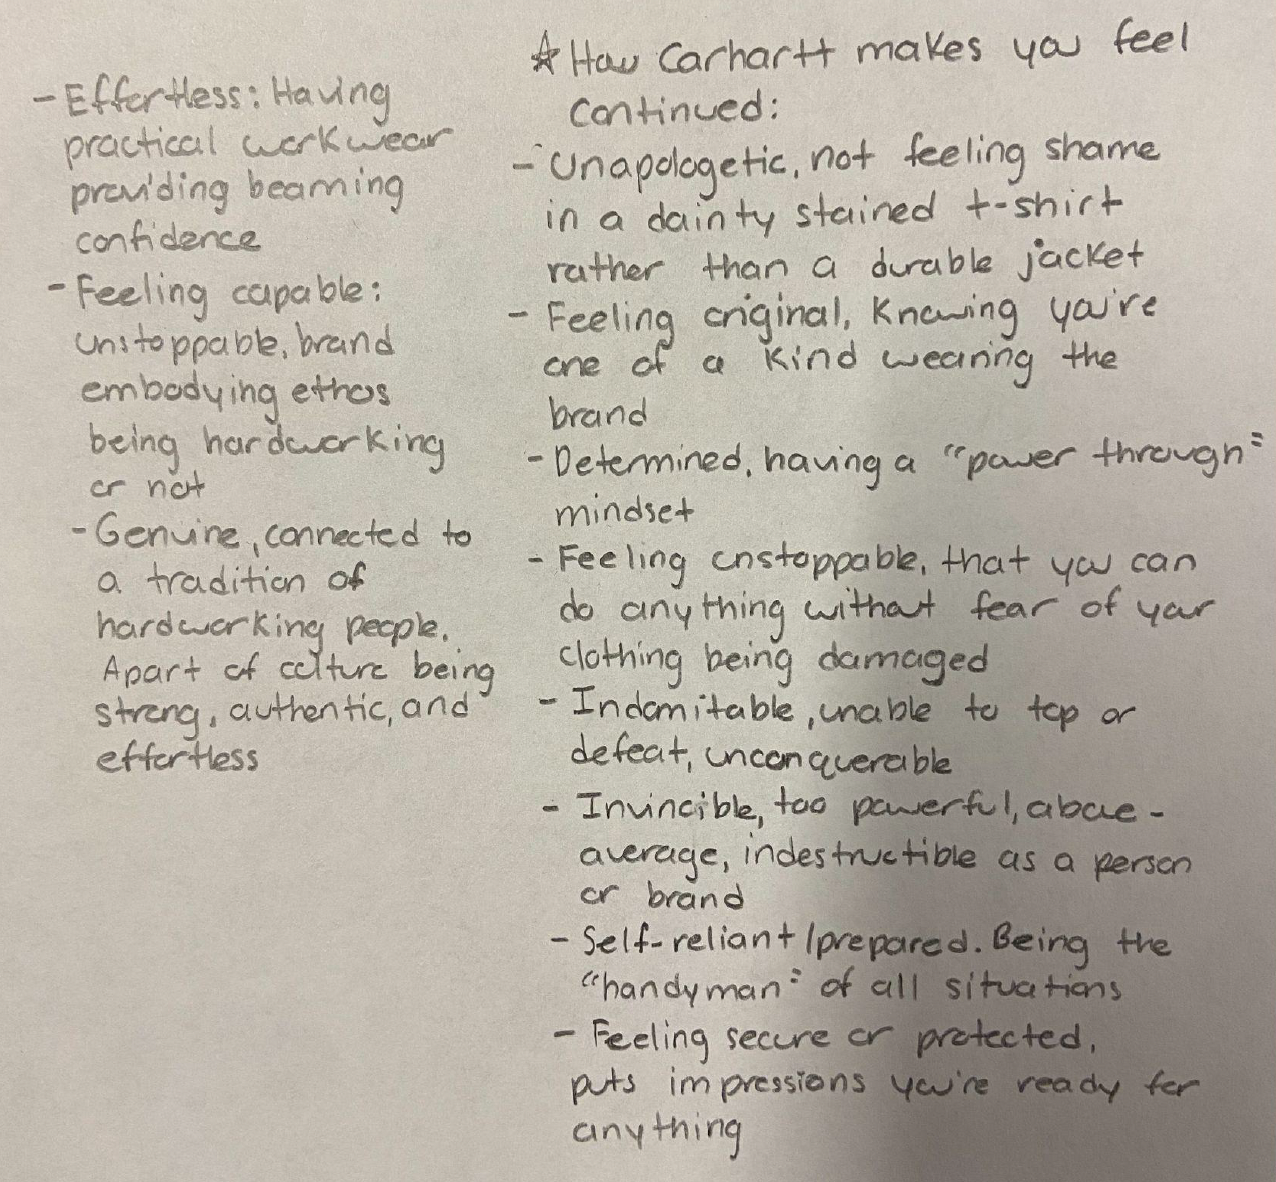 - Effortless: Having
practical workwear
providing beaming
confidence
- Feeling capable:
unstoppable, brand
embodying ethos
being hardworking
or not
- Genuine, connected to
a tradition of
hardworking people.
Apart of culture being
strong, authentic, and
effortless
☆ How Carhartt makes you feel
continued:
- Unapologetic, not feeling shame
in a dainty stained t-shirt
rather than a durable jacket
- Feeling original, Knowing you're
one of a kind wearing the
brand
- Determined, having a "power through"
mindset
- Feeling unstoppable, that you can
do anything without fear of your
clothing being damaged
- Indomitable, unable to top or
defeat, unconquerable
- Invincible, too powerful, above-
average, indestructible as a person
or brand
- Self-reliant/prepared. Being the
"handyman" of all situations
- Feeling secure or protected,
puts impressions you're ready for
anything